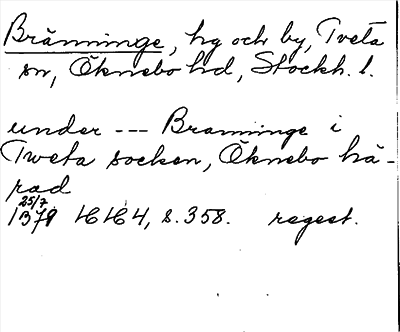 Bränninge, hg och by, Tveta
sn, Öknebo hd, Stockh. l.
under --- Branninge i
Tweta socken, Öknebo hä-
rad
25/7
1379 HH4, s. 358. regest.